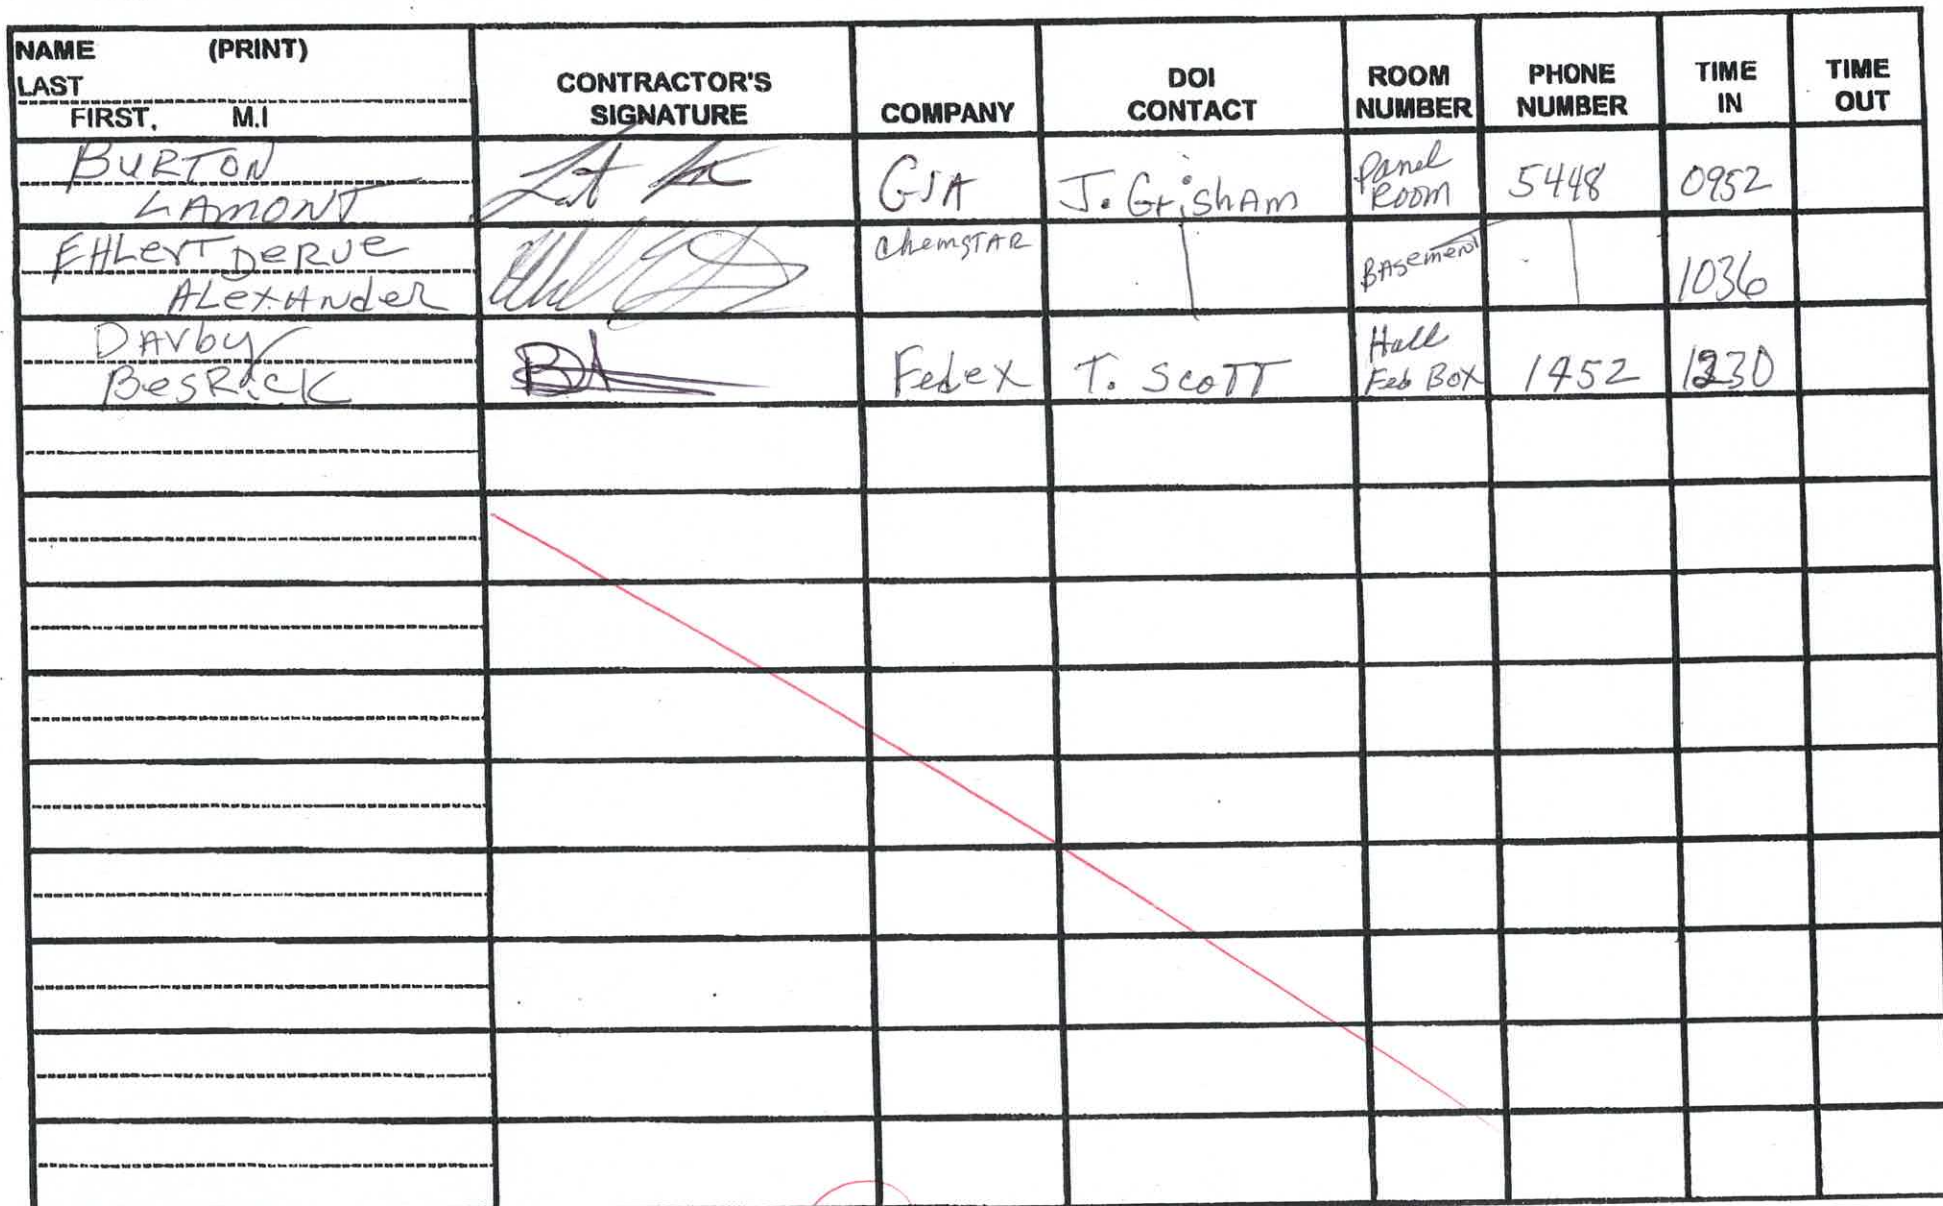 NAME (PRINT)
LAST
FIRST, M.I
CONTRACTOR'S
SIGNATURE
COMPANY
DOI
CONTACT
ROOM
NUMBER
PHONE
NUMBER
TIME
IN
TIME
OUT
BURTON
LAMONT
GSA
J. Grisham
Panel
Room
5448
0952
EHLerT DeRUe
ALexANder
ChemSTAR
BAsement
1036
DArby
BesRick
Fedex
T. Scott
Hall
Fed Box
1452
1230